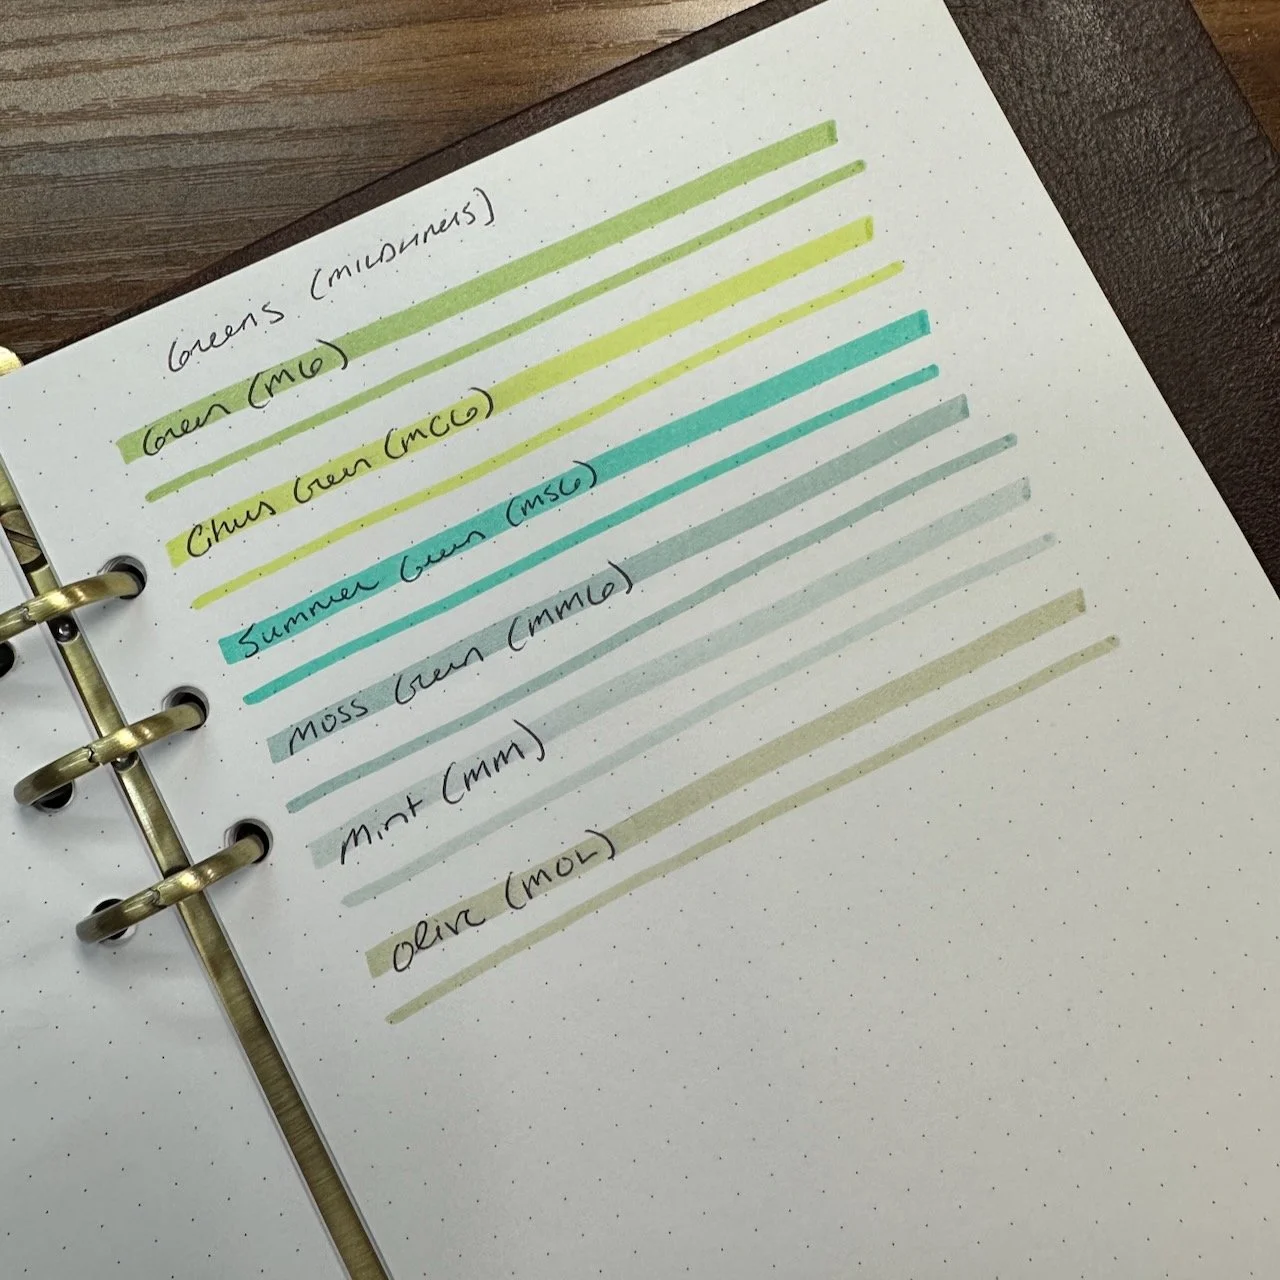 Greens (MILDLINERS)
Green (MG)
Citrus Green (MCG)
Summer Green (MSG)
Moss Green (MMG)
Mint (MM)
Olive (MOL)